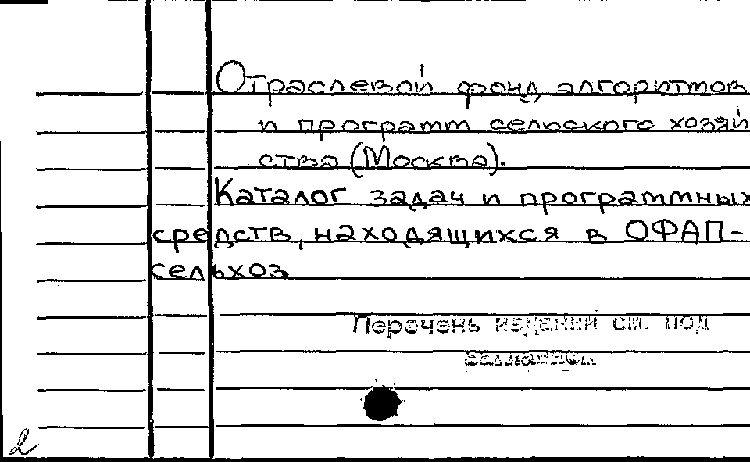 Отраслевой фонд алгоритмов
и программ сельского хозяй
ства (Москва).
Каталог задач и программных
средств, находящихся в ОФАП-
сельхоз
Перечень изданий см. под
заглавием
2